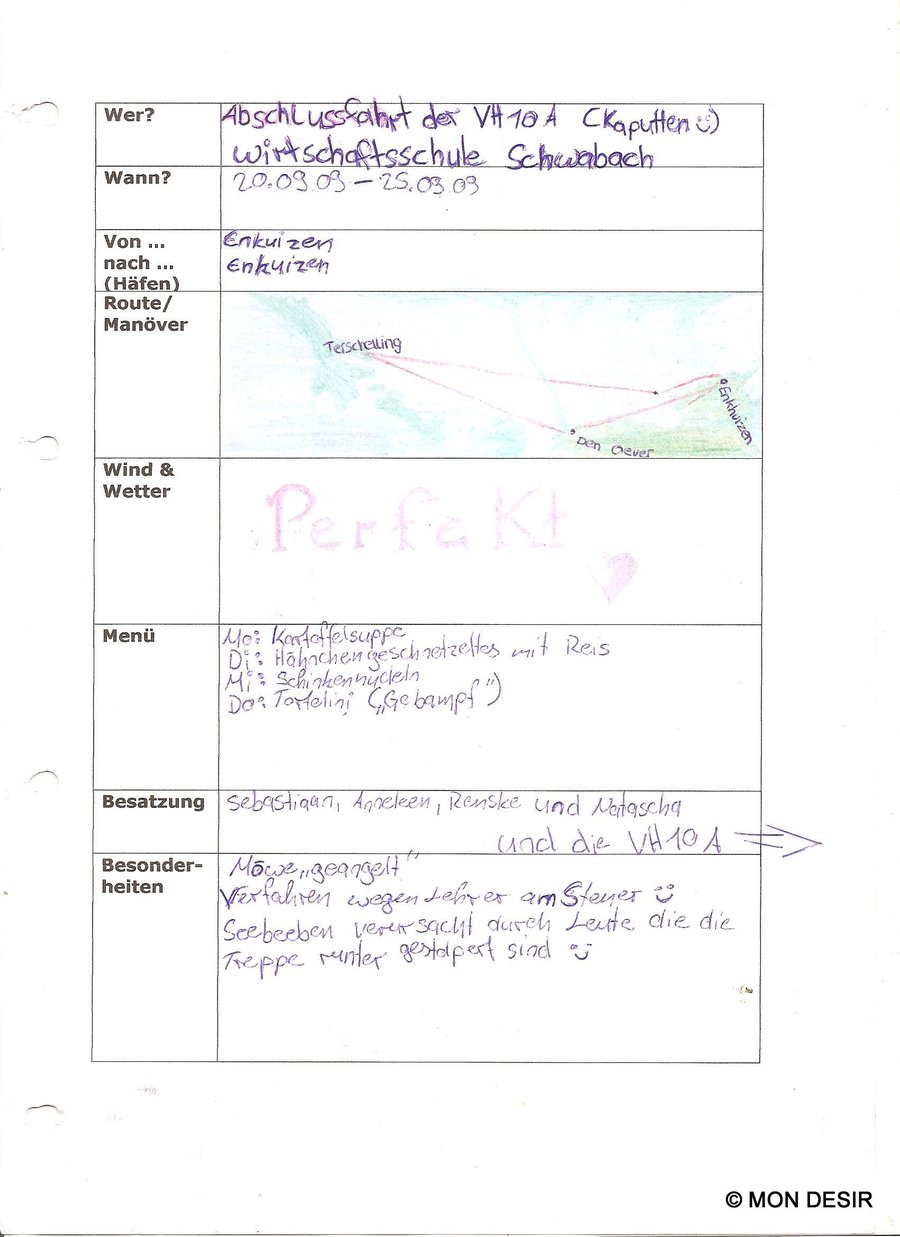 Wer?
Abschlussfahrt der VH10A (Kaputten :)
Wirtschaftsschule Schwabach
Wann?
20.09.09 – 25.09.09
Von ...
nach ...
(Häfen)
Enkuizen
Enkuizen
Route/
Manöver
Terschelling
Enkhuizen
Den Oever
Wind &
Wetter
Perfekt
Menü
Mo: Kartoffelsuppe
Di: Hähnchengeschnetzeltes mit Reis
Mi: Schinkennudeln
Do: Tortelini („Gebampf")
Besatzung
Sebastiaan, Anneleen, Renske und Natascha
und die VH10A
Besonder-
heiten
Möwe „geangelt"
Verfahren wegen Lehrer am Steuer :)
Seebeeben verursacht durch Leute die die
Treppe runter gestolpert sind :)
© MON DESIR